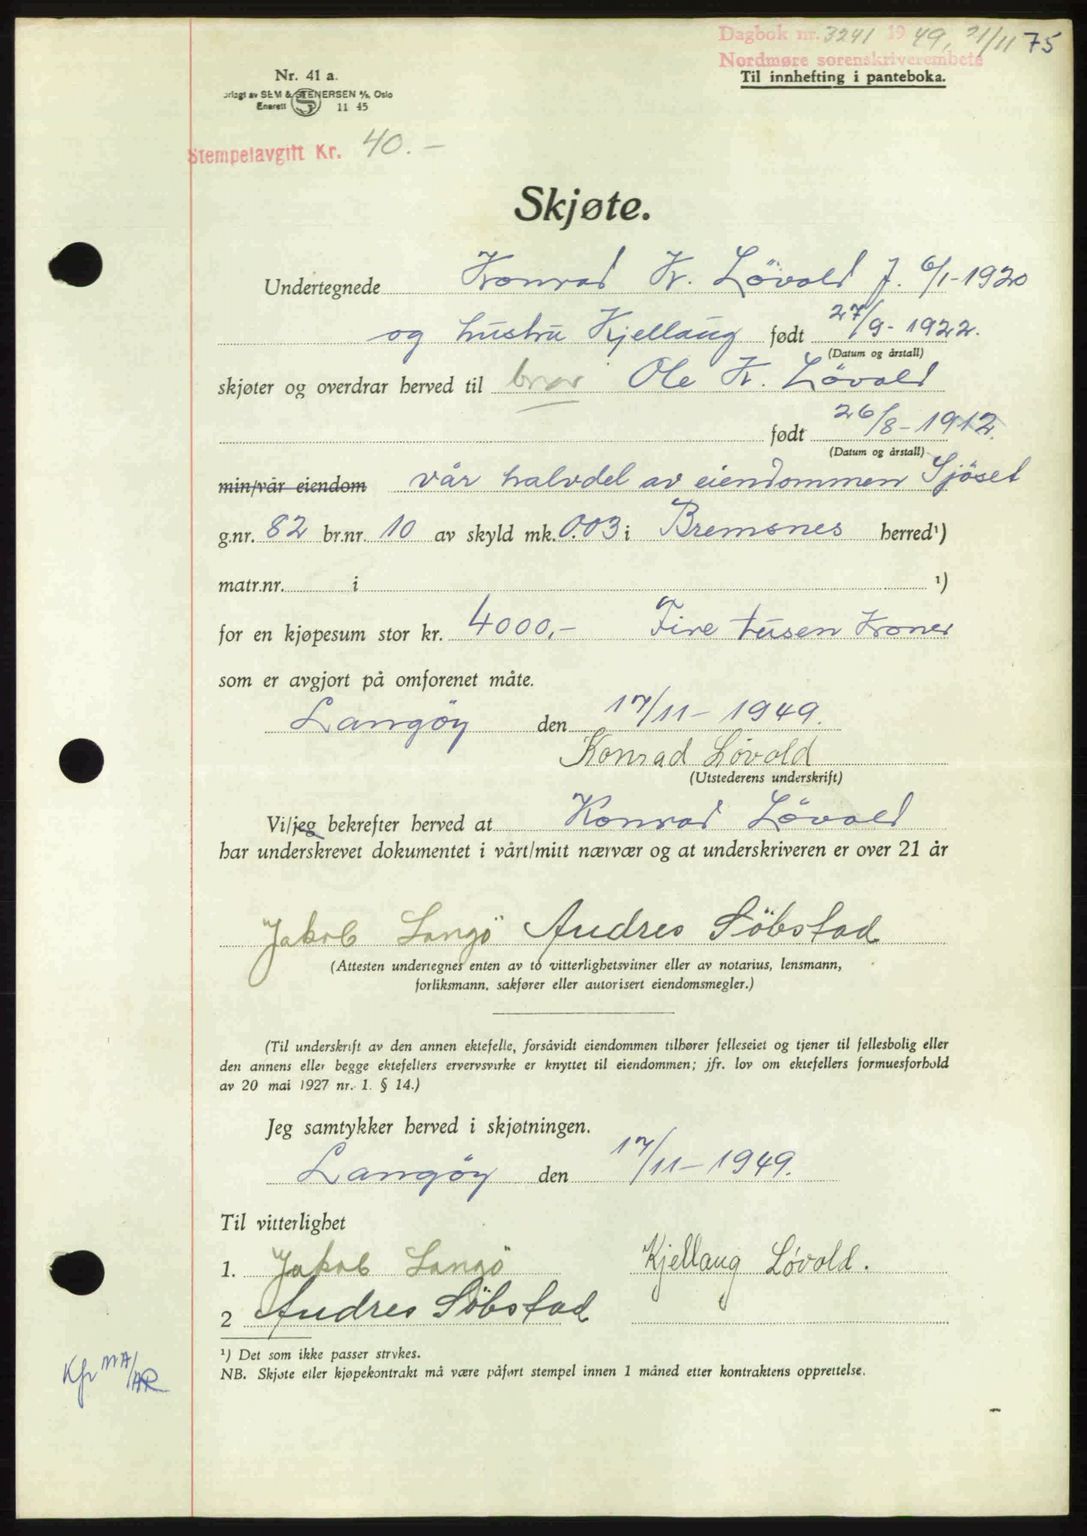 Dagbok nr. 3241 1949, 21/11 75
Nordmøre sorenskriverembete
Til innhefting i panteboka.
Nr. 41 a.
orlagt av SEM & STENERSEN A/S, Oslo
Enerett S 11 45
Stempelavgift Kr. 40.-
Skjøte.
Undertegnede Konrad K. Lövold f. 6/1-1920
og hustru Kjellaug født 27/9-1922.
(Datum og årstall)
skjøter og overdrar herved til bror Ole K. Lövold
født 26/8-1912.
(Datum og årstall)
min/vår eiendom vår halvdel av eiendommen Sjöset
g.nr. 82 br.nr. 10 av skyld mk. 0.03 i Bremsnes herred¹)
matr.nr. i ¹)
for en kjøpesum stor kr. 4000,- Fire tusen Kroner
som er avgjort på omforenet måte.
Langöy den 17/11-1949.
Konrad Lövold
(Utstederens underskrift)
Vi/jeg bekrefter herved at Konrad Lövold
har underskrevet dokumentet i vårt/mitt nærvær og at underskriveren er over 21 år
Jakob Langö Andres Söbstad
(Attesten undertegnes enten av to vitterlighetsvitner eller av notarius, lensmann,
forliksmann, sakfører eller autorisert eiendomsmegler.)
(Til underskrift av den annen ektefelle, forsåvidt eiendommen tilhører felleseiet og tjener til fellesbolig eller
den annens eller begge ektefellers ervervsvirke er knyttet til eiendommen; jfr. lov om ektefellers formuesforhold
av 20 mai 1927 nr. 1. § 14.)
Jeg samtykker herved i skjøtningen.
Langöy den 17/11-1949.
Til vitterlighet
1. Jakob Langö Kjellaug Lövold.
2 Andres Söbstad
¹) Det som ikke passer strykes.
NB. Skjøte eller kjøpekontrakt må være påført stempel innen 1 måned etter kontraktens opprettelse.